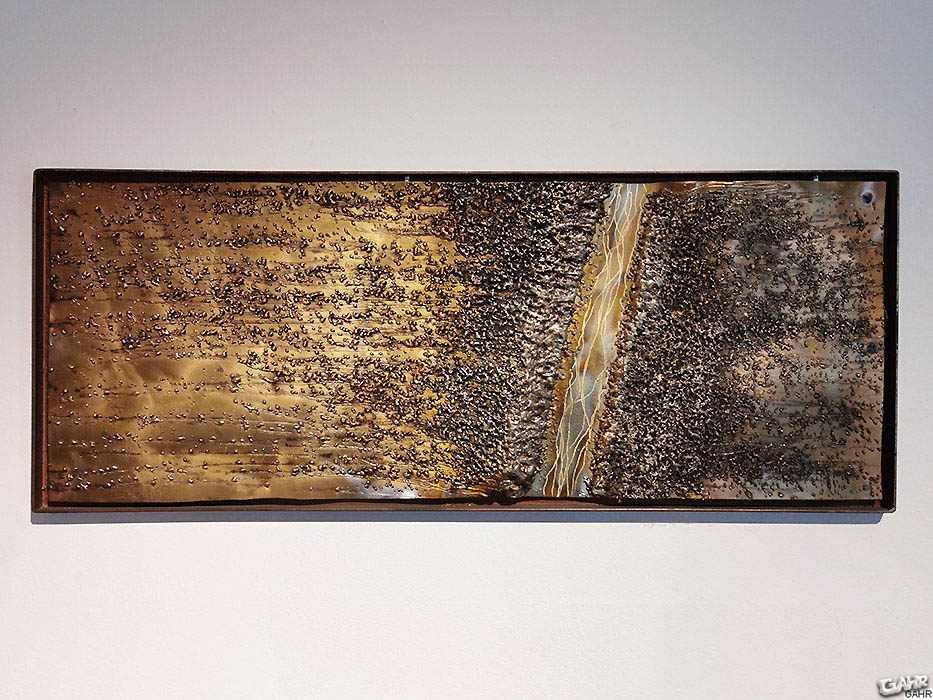 GAHR
GAHR